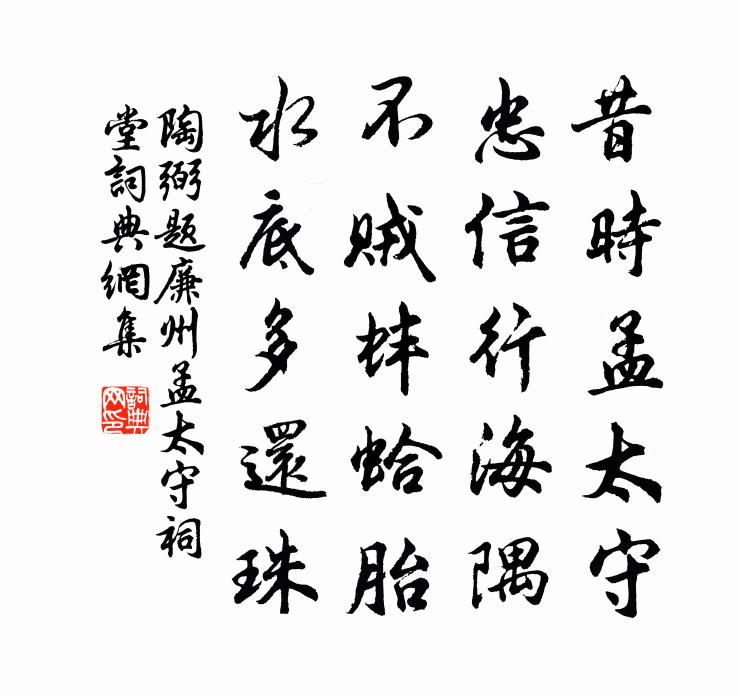 昔時孟太守
忠信行海隅
不賊蚌蛤胎
水底多還珠
陶弼题廉州孟太守祠
堂詞典網集
詞典
网印